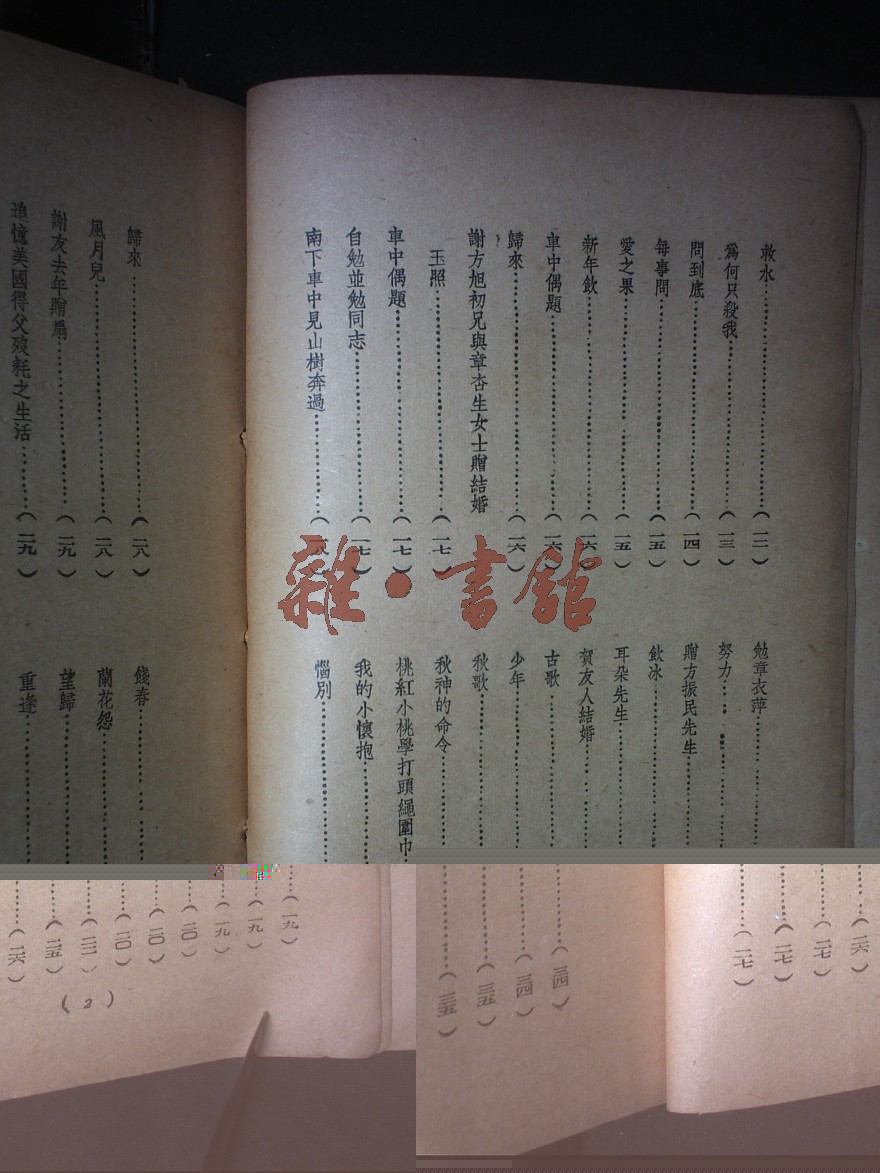 救水………………(一二)
為何只殺我………………(一三)
問到底………………(一四)
每事問………………(一五)
愛之果………………(一五)
新年飲………………(一六)
車中偶題………………(一六)
歸來………………(一六)
謝方旭初兄與章杏生女士贈結婚
玉照………………(一七)
車中偶題………………(一七)
自勉並勉同志………………(一七)
南下車中見山樹奔過………………(一八)
勉章衣萍………………
努力………………
贈方振民先生………………
飲冰………………
耳朵先生………………
賀友人結婚………………
古歌………………
少年………………
秋歌………………
秋神的命令………………
桃紅小桃學打頭繩圍巾
我的小懷抱………………
惱別………………
歸來………………(二八)
風月兒………………(二八)
謝友去年贈扇………………(二九)
追憶美國得父歿耗之生活………(二九)
餞春………………
蘭花怨………………
望歸………………
重逢………………
雜·書館
(一九)
(一九)
(一九)
(二〇)
(二〇)
(二〇)
(二五)
(二六)
(2)
(三四)
(三四)
(三五)
(三五)
(二六)
(二七)
(二七)
(二七)